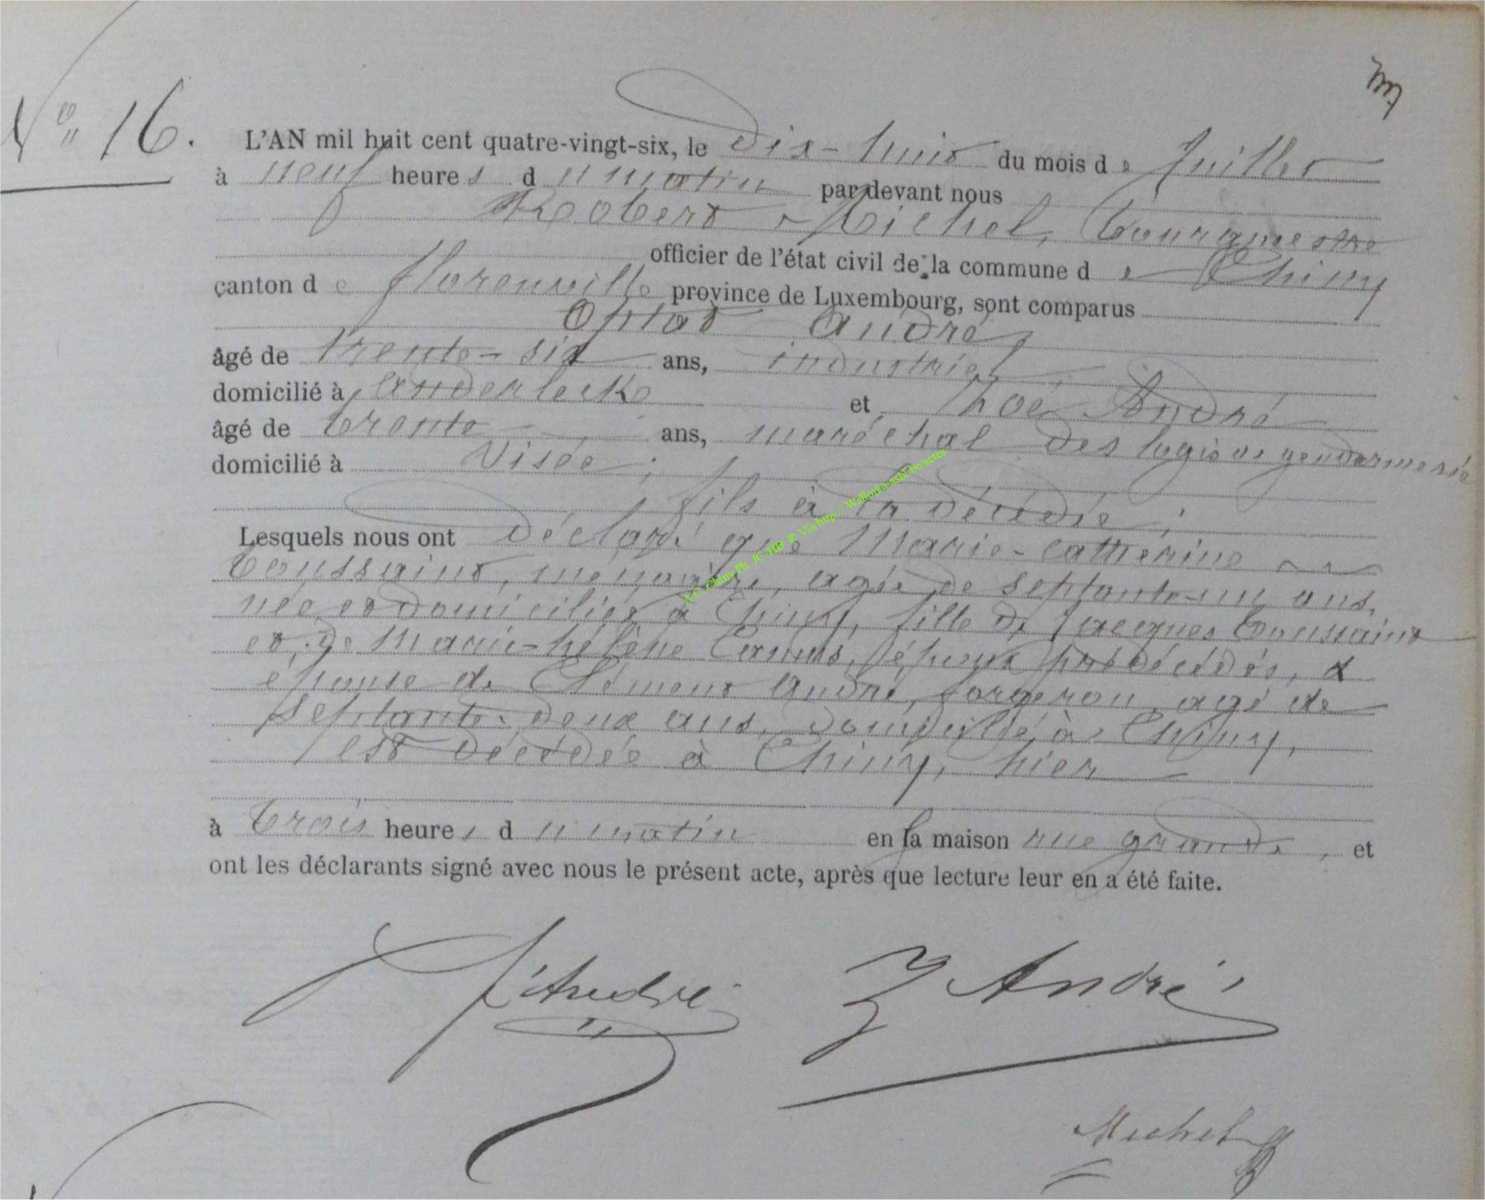 N° 16.
L'AN mil huit cent quatre-vingt-six, le dix-huit du mois de Juillet
à neuf heures du matin par devant nous
Robert Michel, bourgmestre
officier de l'état civil de la commune de Chiny
canton de florenville province de Luxembourg, sont comparus
Optat André,
âgé de trente-six ans, industriel,
domicilié à Anderleck et Zoé André
âgé de trente ans, maréchal des logis de gendarmerie
domicilié à Visée ;
fils à la décédée ;
Lesquels nous ont déclaré que Marie-Catherine
Toussaint, ménagère, agée de septante-un ans,
née et domiciliée à Chiny, fille de Jacques Toussaint
et de Marie-hélène époux prédécédés, &
épouse de Clément André, forgeron, agé de
septante-deux ans, domicilié à Chiny,
est décédée à Chiny, hier
à trois heures du matin en sa maison rue grande, et
ont les déclarants signé avec nous le présent acte, après que lecture leur en a été faite.
André Z André
Michel